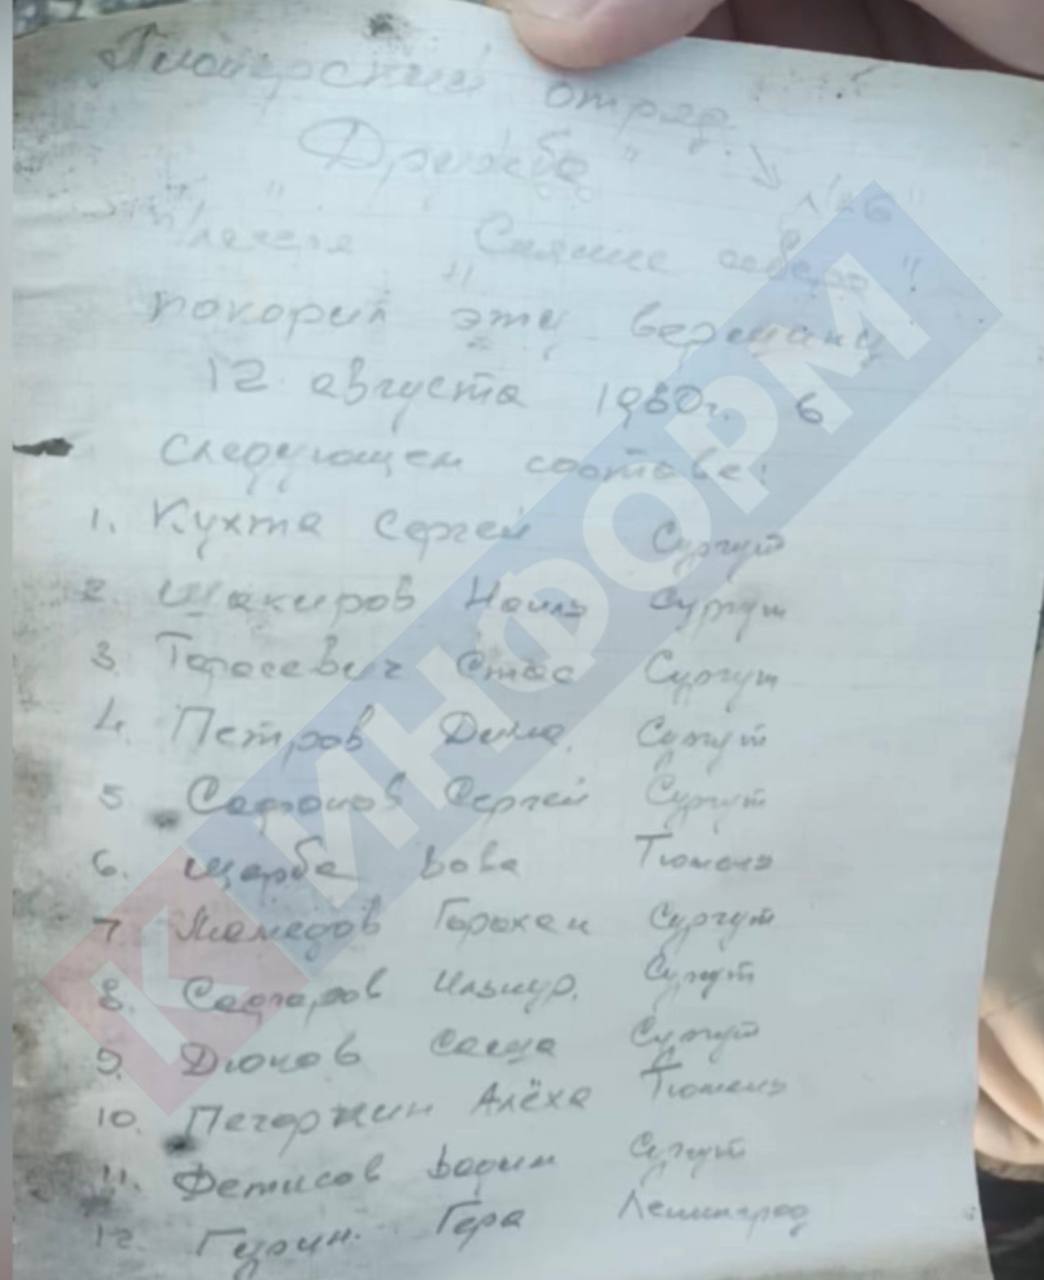 Пионерский отряд
"Дружба"
п/лагеря "Сияние севера"
покорил эту вершину
12 августа 1980г. в
следующем составе:
1. Кухта Сергей Сургут
2. Шакиров Наиль Сургут
3. Тарасевич Стас Сургут
4. Петров Дима. Сургут
5 Сафонов Сергей Сургут
6. Щерба Вова Тюмень
7 Мамедов Сургут
8. Ильнур. Сургут
9. Дюков Саша Сургут
10. Печоркин Алёха Тюмень
11. Фетисов Вадим Сургут
12. Гера Ленинград
КИНФОРМ